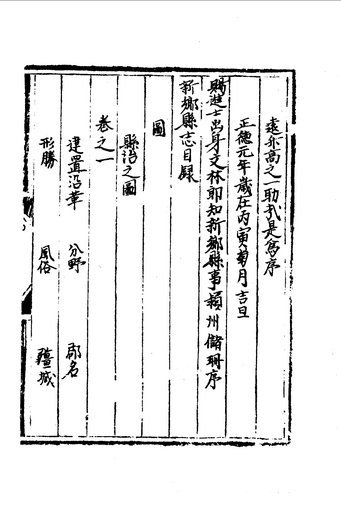 遠升高之一助哉是爲序
正德元年歲在丙寅菊月吉旦
賜進士出身文林郎知新鄉縣事潁州儲珊序
新鄉縣志目錄
圖
縣治之圖
卷之一
建置沿革 分野 郡名
形勝 風俗 疆域